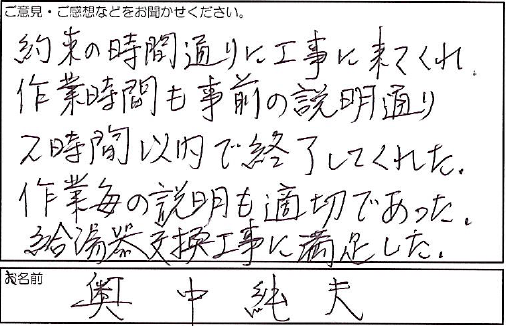 ご意見・ご感想などをお聞かせください。
約束の時間通りに工事に来てくれ、
作業時間も事前の説明通り
2時間以内で終了してくれた。
作業毎の説明も適切であった。
給湯器交換工事に満足した。
お名前
奥中純夫